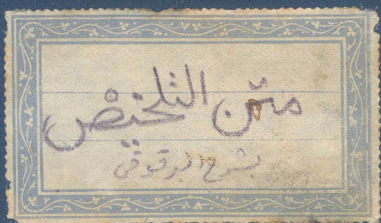 متن التلخيص
بشرح البرقوقى